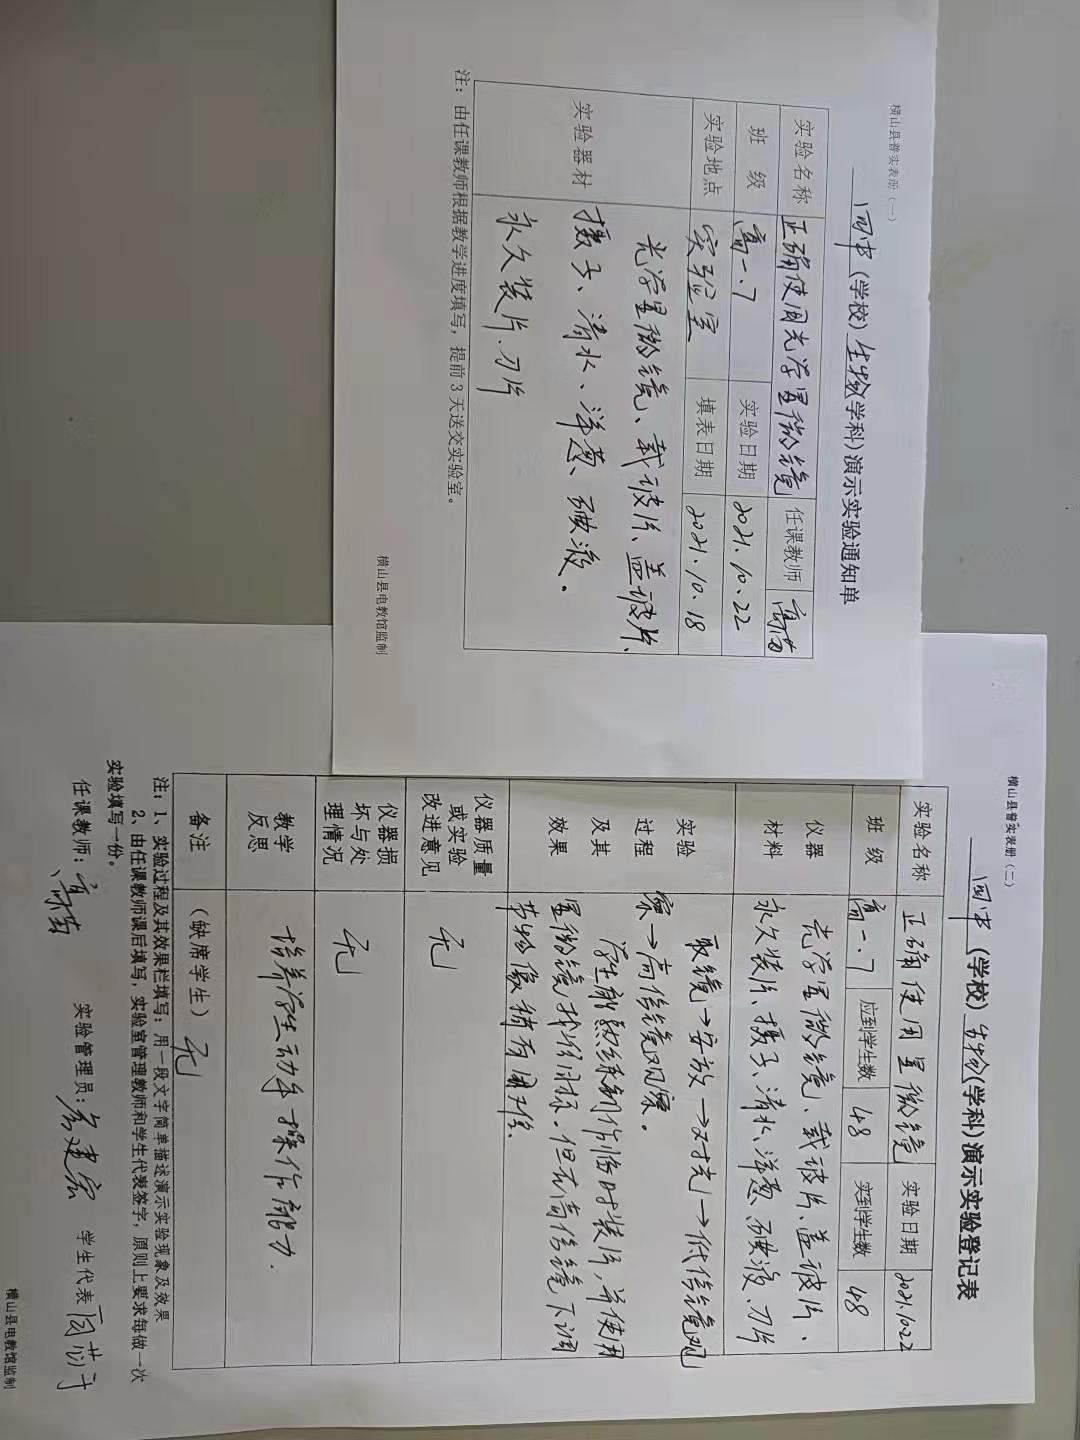 横山县普实表册（一）
四中（学校）生物（学科）演示实验通知单
实验名称 正确使用光学显微镜 任课教师 高苗
班 级 高一.7 实验日期 2021.10.22
实验地点 实验室 填表日期 2021.10.18
实验器材 光学显微镜、载玻片、盖玻片、
摄子、清水、洋葱、碘液。
永久装片、刀片
注：由任课教师根据教学进度填写，提前 3 天送交实验室。
横山县电教馆监制
横山县普实表册（二）
四中（学校）生物（学科）演示实验登记表
实验名称 正确使用显微镜 实验日期 2021.10.22
班 级 高一.7 应到学生数 48 实到学生数 48
仪器材料 光学显微镜、载玻片、盖玻片、
永久装片、摄子、清水、洋葱、碘液、刀片
实验过程及其效果 取镜→安放→对光→低倍镜观
察→高倍镜观察。
学生能熟练制作临时装片,并使用
显微镜找到目标.但在高倍镜下调
节物像稍有困难.
仪器质量或实验改进意见 无
仪器损坏与处理情况 无
教学反思 培养学生动手操作能力.
备注 （缺席学生）无
注：1、实验过程及其效果栏填写：用一段文字简单描述演示实验现象及效果
2、由任课教师课后填写，实验室管理教师和学生代表签字，原则上要求每做一次
实验填写一份。
任课教师：高苗 实验管理员： 建宏 学生代表
横山县电教馆监制